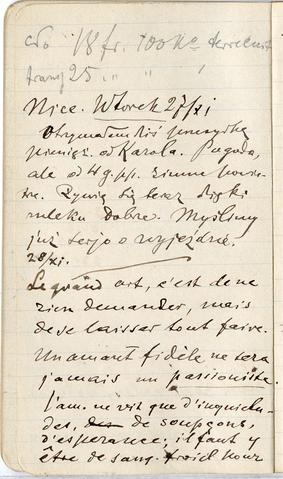 cło 18 fr. 100 Ko
franz 25 „ „ „
Nice. Wtorek 27/XI
Otrzymałem dziś przesyłkę
pienięż. od Karola. Pogoda,
ale od 4 g. pp. zimne powie-
trze. Żywię się teraz dzięki
mleku dobrze. Myślimy
już serjo o wyjeździe.
28/XI.
Le grand art, c'est de ne
rien demander, mais
de se laisser tout faire.
Un amant fidèle ne sera
jamais un passioniste.
L'am. ne vit que d'inquietu-
des, de soupçons,
d'esperance; il faut y
être de sang-froid pour